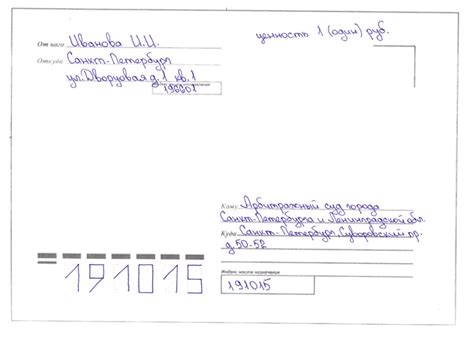 От кого Иванова И.И.
ценность 1 (один) руб.
Откуда Санкт-Петербург
ул.Дворцовая д.1 кв.1
192201
Кому Арбитражный суд города
Санкт-Петербурга и Ленинградской обл.
Куда Санкт-Петербург, Суворовский пр.
д.50-52
Индекс места назначения
191015
191015